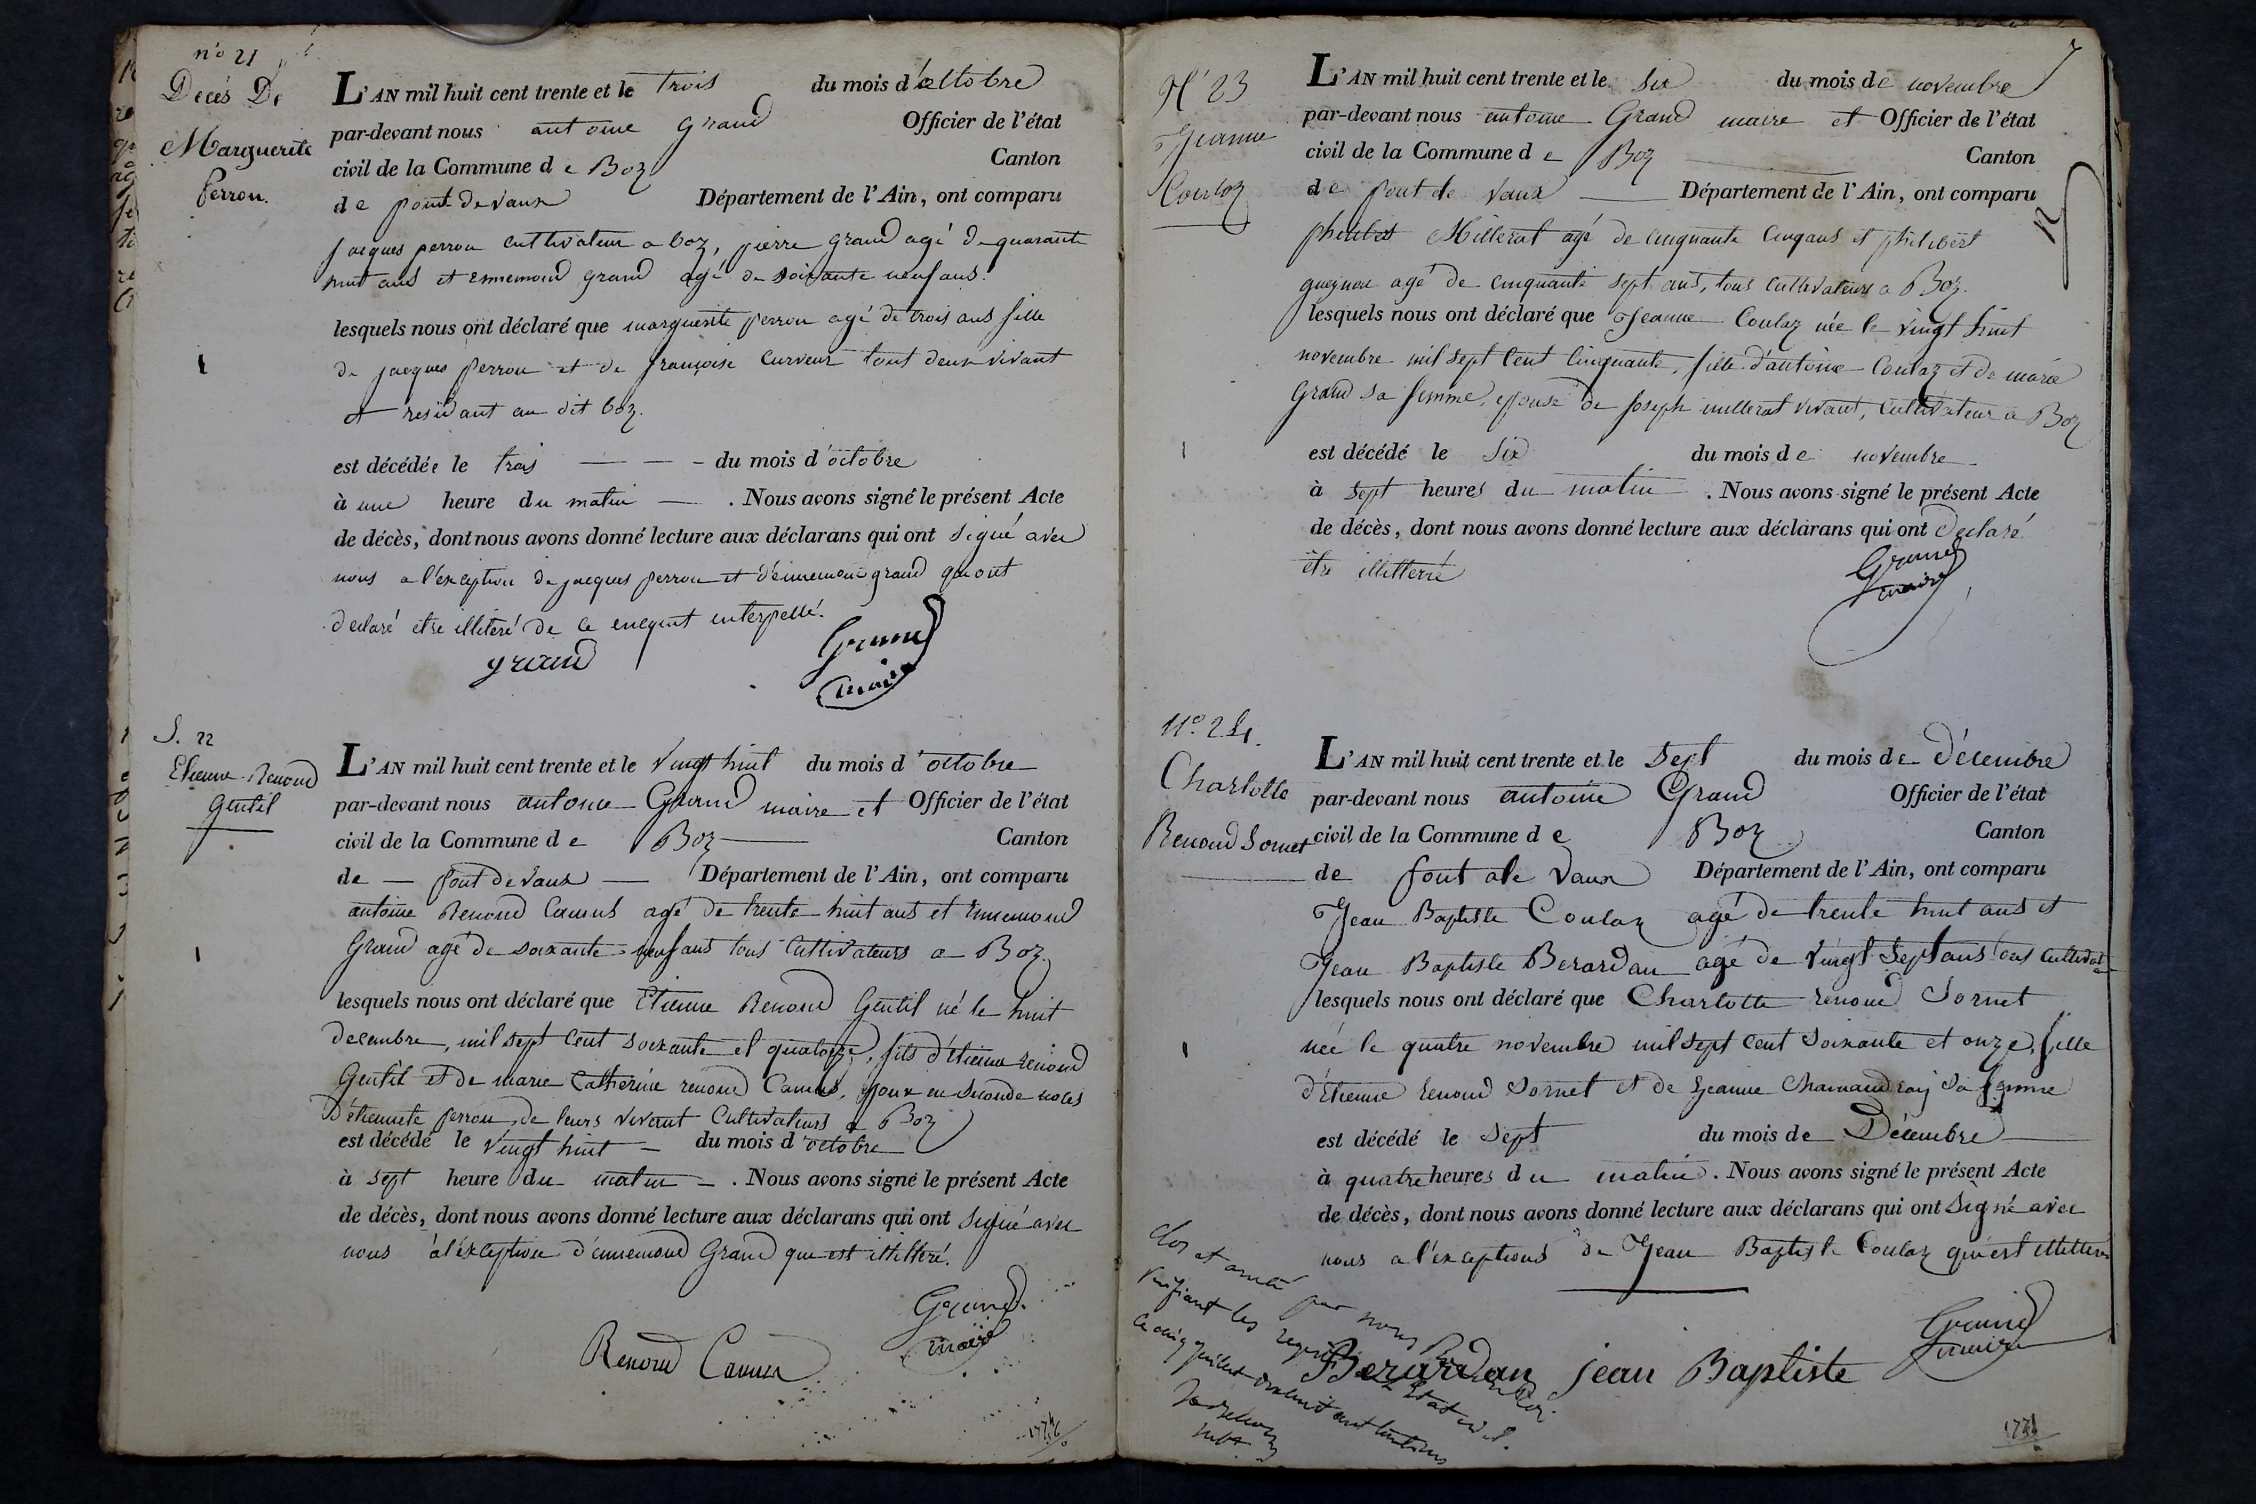 n° 21
Decés De
Marguerite
Perron.
L'AN mil huit cent trente et le trois du mois d'octobre
par-devant nous antoine Grand Officier de l'état
civil de la Commune de Boz Canton
de pont devaux Département de l'Ain, ont comparu
jacques perron cultivateur a boz, pierre grand agé de quarante
huit ans et ennemond grand agé de soixante neuf ans.
lesquels nous ont déclaré que marguerite perron agé de trois ans fille
de jacques perron et de françoise curveur tout deux vivant
et residant au dit boz.
est décédée le trois du mois d'octobre
à une heure du matin . Nous avons signé le présent Acte
de décès, dont nous avons donné lecture aux déclarans qui ont signé avec
nous a l'exception de jacques perron et d'ennemond grand qui ont
declaré etre illiteré de ce enquit interpellé.
grand Grand
maire
S. 22
Etienne Renoud
Gentil
L'AN mil huit cent trente et le vingt huit du mois d'octobre
par-devant nous antoine Grand maire et Officier de l'état
civil de la Commune de Boz Canton
de pont de vaux Département de l'Ain, ont comparu
antoine Renoud Camus agé de trente huit ans et Ennemond
Grand agé de soixante neuf ans tous cultivateurs a Boz.
lesquels nous ont déclaré que Etienne Renoud Gentil né le huit
decembre, mil sept cent soixante et quatorze, fils d'etienne renoud
Gentil et de marie Catherine renoud Camus, epoux en seconde noces
D'etiennete perron, de leurs vivant Cultivateurs a Boz
est décédé le vingt huit du mois d'octobre
à sept heure du matin . Nous avons signé le présent Acte
de décès, dont nous avons donné lecture aux déclarans qui ont signé avec
nous à l'exception d'ennemond Grand que est illittéré.
Grand
maire
Renoud Camus
N° 23
Jeanne
Coulaz
L'AN mil huit cent trente et le six du mois de novembre
par-devant nous antoine Grand maire et Officier de l'état
civil de la Commune de Boz Canton
de pont de vaux Département de l'Ain, ont comparu
Millerat agé de cinquante cinq ans et philibert
gueynon agé de cinquante sept ans, tous cultivateurs a Boz.
lesquels nous ont déclaré que Jeanne Coulaz née le vingt huit
novembre mil sept cent cinquante, fille d'antoine Coulaz et de marie
Grand sa femme, epouse de joseph millerat vivant, cultivateur a Boz
est décédé le six du mois de novembre
à sept heures du matin . Nous avons signé le présent Acte
de décès, dont nous avons donné lecture aux déclarans qui ont declaré
être illitterré
Grand
maire
N° 24.
Charlotte
Renoud Sornet
L'AN mil huit cent trente et le sept du mois de décembre
par-devant nous antoine Grand Officier de l'état
civil de la Commune de Boz Canton
de pont de vaux Département de l'Ain, ont comparu
Jean Baptiste Coulaz agé de trente huit ans et
Jean Baptiste Berardan agé de vingt sept ans tous cultivat
lesquels nous ont déclaré que Charlotte renoud Sornet
née le quatre novembre mil sept cent soixante et onze, fille
d'Etienne renoud Sornet et de Jeanne sa femme
est décédé le sept du mois de Décembre
à quatre heures du matin . Nous avons signé le présent Acte
de décès, dont nous avons donné lecture aux déclarans qui ont signé avec
nous a l'exceptions de Jean Baptiste Coulaz qui est illitteré
Grand
maire
Berardan jean Baptiste
Clos et arrêté par nous
vérifiant les registres de l'Etat civil.